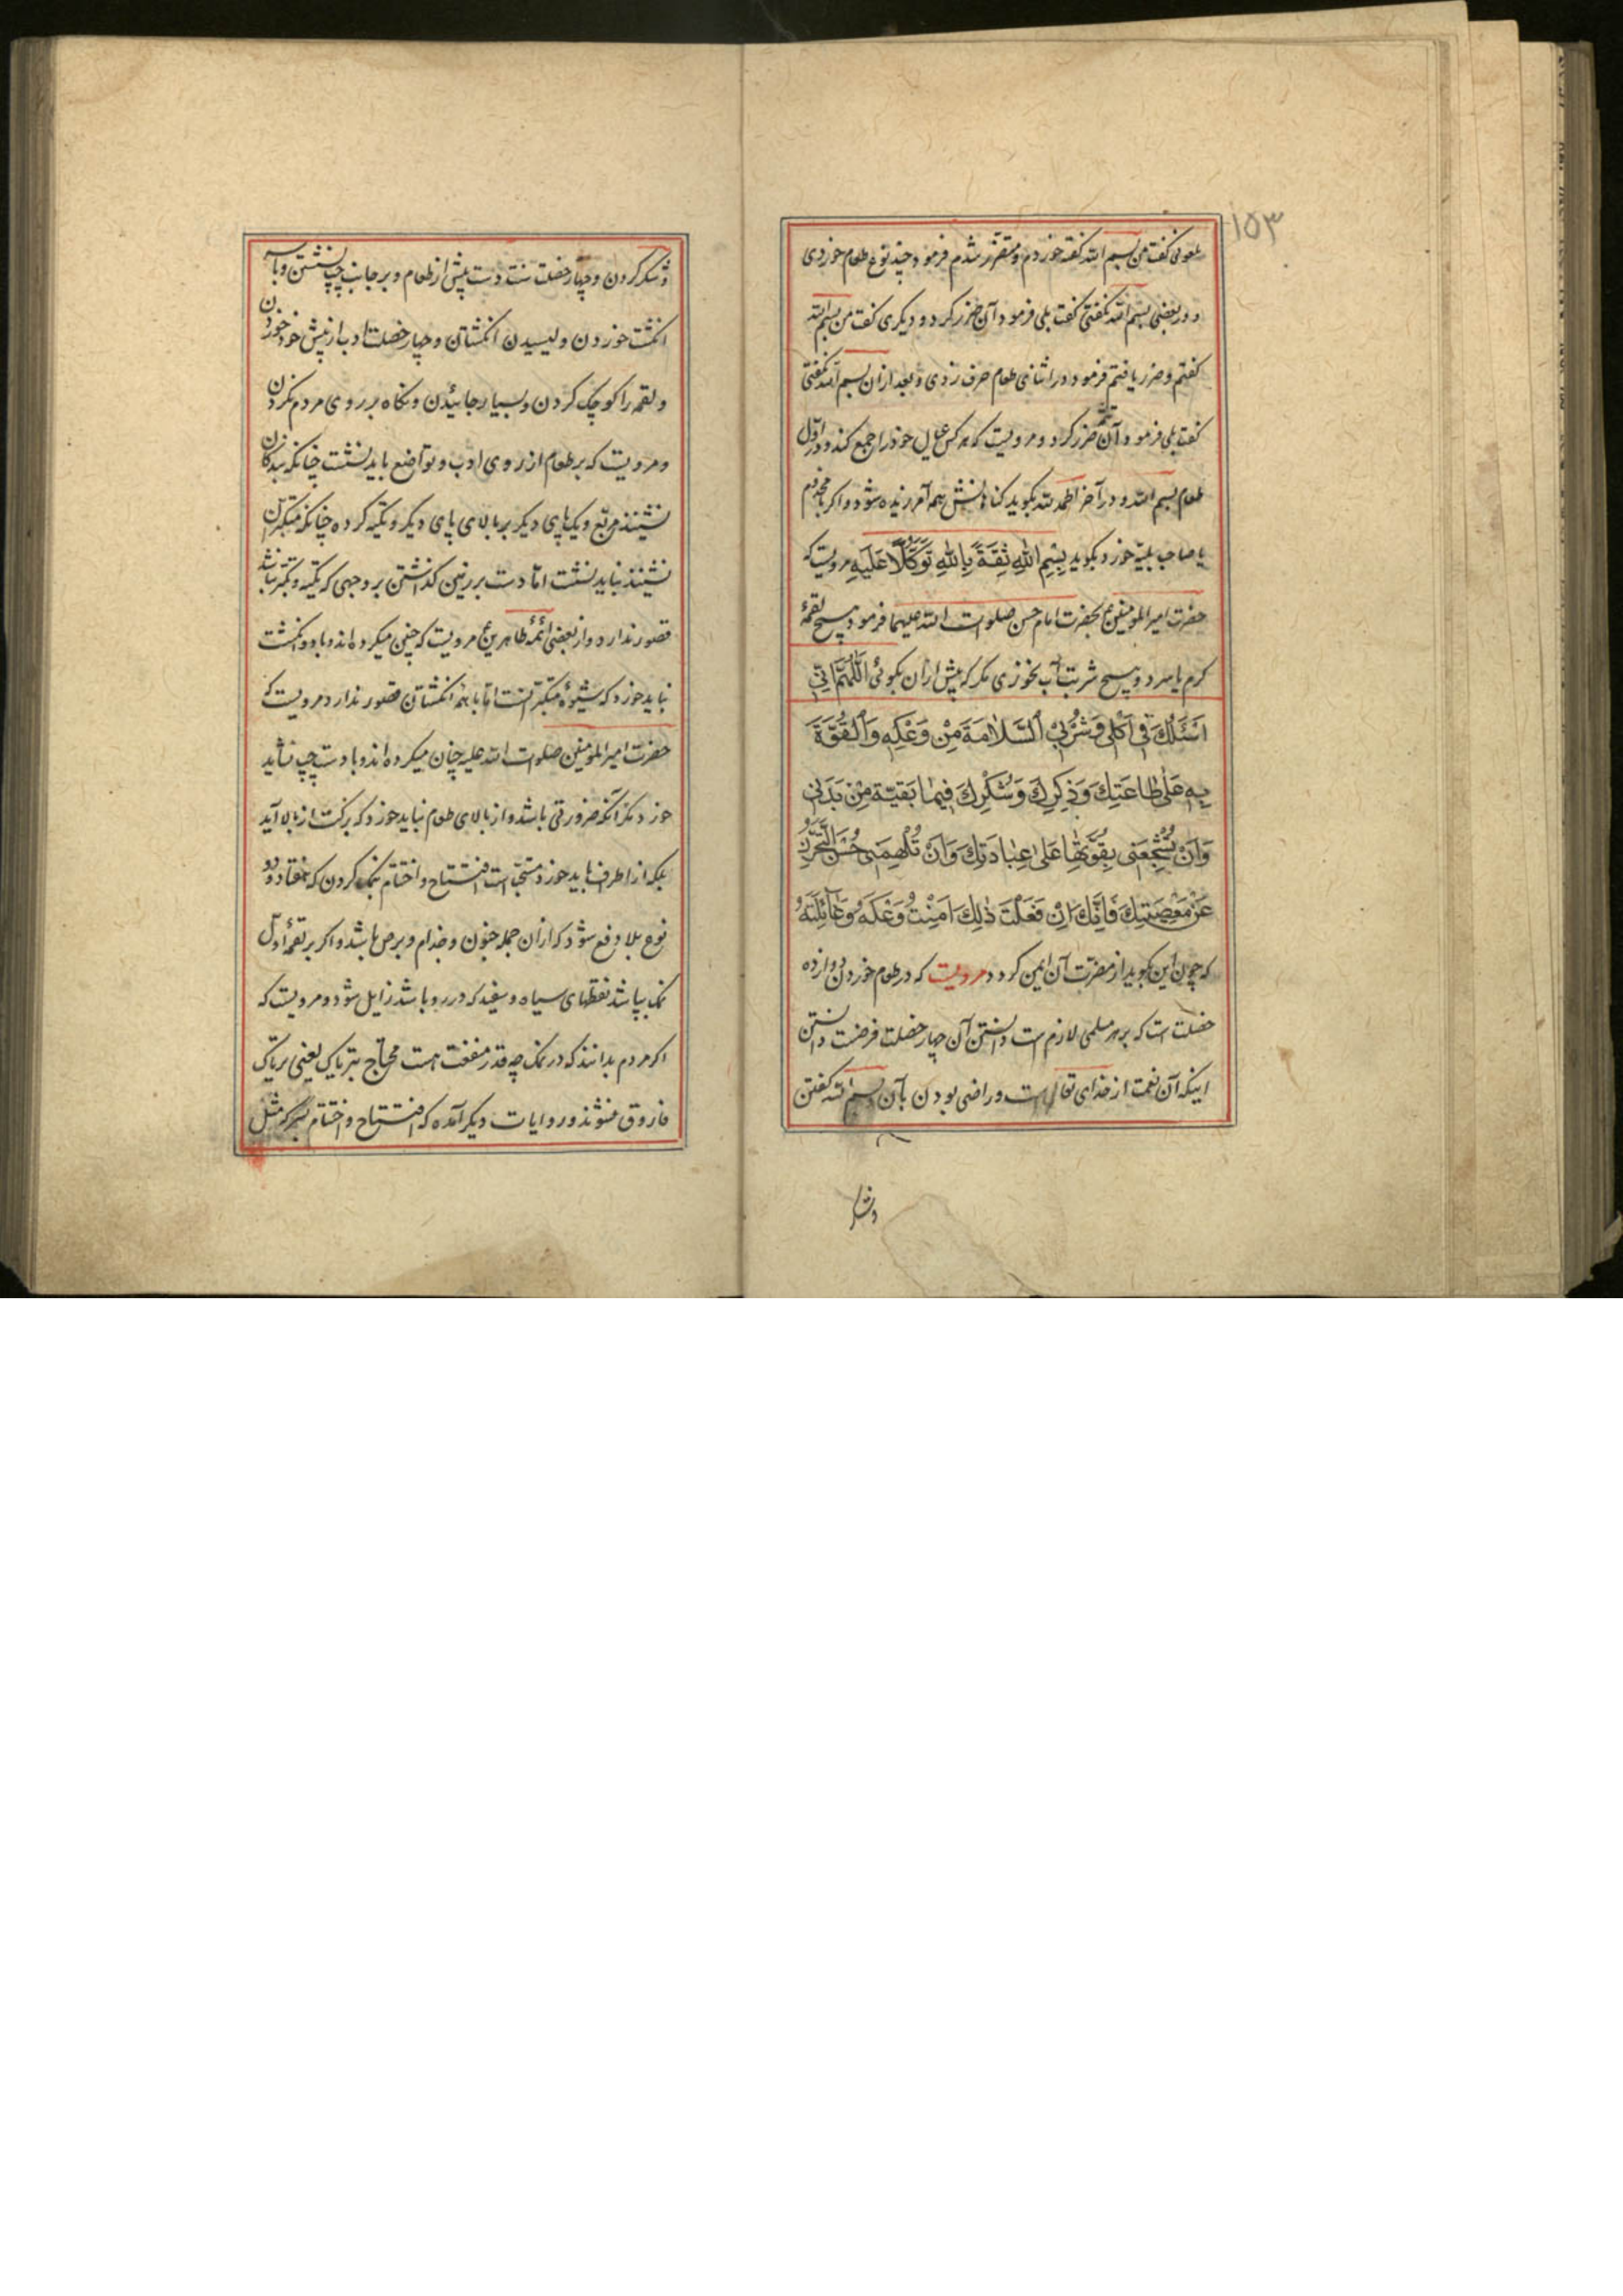 ۱۵۳
ملعونی گفت من بسم الله گفته خوردم و متضرر شدم فرمود چند نوع طعام خوردی
و در بعضی بسم الله نگفتی گفت بلی فرمود آن ضرر کرد و دیگری گفت من بسم الله
گفتم و ضرر یافتم فرمود در اثنای طعام حرف زدی و بعد از ان بسم الله نگفتی
گفت بلی فرمود آن ضرر کرد و مرویست که هر کس عیال خود را جمع کند و در اول
طعام بسم الله و در آخر الحمد لله بکوید کناهانش همه آمرزیده شود و اکر با مجذوم
یا صاحب بلیه خورد بکوید بِسْمِ اللهِ ثِقَةً بِاللهِ تَوَكُّلًا عَلَيْهِ مرویست که
حضرت امیر المومنین بحضرت امام حسن صلوات الله علیهما فرمود هیچ لقمهٔ
کرم یا سرد و هیچ شربت آب نخوری مکر که پیش از ان بکوئی اَللّٰهُمَّ اِنّي
اَسْئَلُكَ فی اَكْلی وَشُرْبیْ اَلسَّلامَةَ مِنْ وَعْكِهِ وَالْقُوَّةَ
بِهِ عَلٰی طاعَتِكَ وَذِكْرِكَ وَشُكْرِكَ فیما بَقیَّة مِنْ بَدَنی
وَاَنْ تُشَجِّعَنی بِقُوَّتِها عَلی عِبادَتِكَ وَاَنْ تُلْهِمَنی حُسْنَ التَّحَرُّزِ
عَنْ مَعْصِيَتِكَ فَاِنَّكَ اِنْ فَعَلْتَ ذٰلِكَ اَمِنْتُ وَعْكَهُ وَغائِلَتَهُ
که چون این بکوید از مضرت آن ایمن کردد مرویست که در طعام خوردن دوازده
خصلت است که بر هر مسلمی لازم است دانستن آن چهار خصلت فرضست دانستن
اینکه آن نعمت از خدای تعالی است و راضی بودن بآن و بسم الله گفتن
و شکر
و شکر کردن و چهار خصلت سنت دست پیش از طعام و بر جانب چپ نشستن و با سه
انکشت خوردن و لیسیدن انکشتان و چهار خصلت ادب از پیش خود خوردن
و لقمه را کوچک کردن و بسیار جائیدن و نکاه بر روی مردم نکردن
و مرویست که بر طعام از روی ادب و تواضع باید نشست چنانکه بندکان
نشینند مربع و یک پای دیکر بر بالای پای دیکر و تکیه کرده چنانکه متکبران
نشینند نباید نشست امّا دست بر زمین کذاشتن بر وجهی که تکیه و تکبر نباشد
قصور ندارد و از بعضی ائمّه طاهرین مرویست که چنین میکرده اند و با دو انکشت
نباید خورد که شیوهٔ متکبرانست امّا با همه انکشتان قصور ندارد مرویست که
حضرت امیر المومنین صلوات الله علیه چنان میکرده اند و با دست چپ نشاید
خورد مکر آنکه ضرورتی باشد و از بالای طعام نباید خورد که برکت از بالا آید
بلکه از اطراف باید خورد و مستحب است افتتاح و اختتام بنمک کردن که هفتاد و دو
نوع بلا دفع شود که از ان جمله جنون و جذام و برص باشد و اکر بر لقمهٔ اول
نمک بپاشد نقطهای سیاه و سفید که در رو باشد زایل شود و مرویست که
اکر مردم بدانند که در نمک چه قدر منفعت هست محتاج بتریاک یعنی تریاک
فاروق نشوند و روایات دیکر آمده که افتتاح و اختتام بسرکه مثل